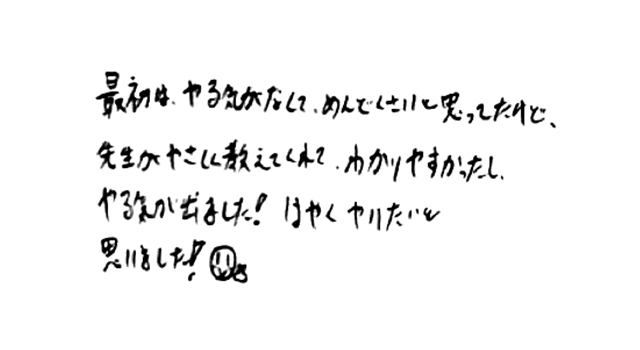 最初は、やる気がなくて、めんどくさいと思ってたけど、
先生がやさしく教えてくれて、わかりやすかったし、
やる気が出ました! はやくやりたいと
思いました!